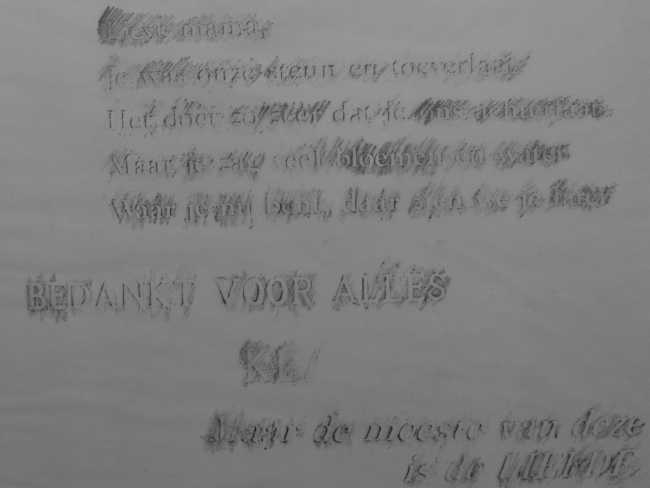 Liefste mama,
je was onze steun en toeverlaat
Het doet zo zeer dat je ons achterlaat.
Maar je zag veel bloemen en water
Waar je bent, daar zijn we je
BEDANKT VOOR ALLES
Maar de meeste van deze
is de LIEFDE